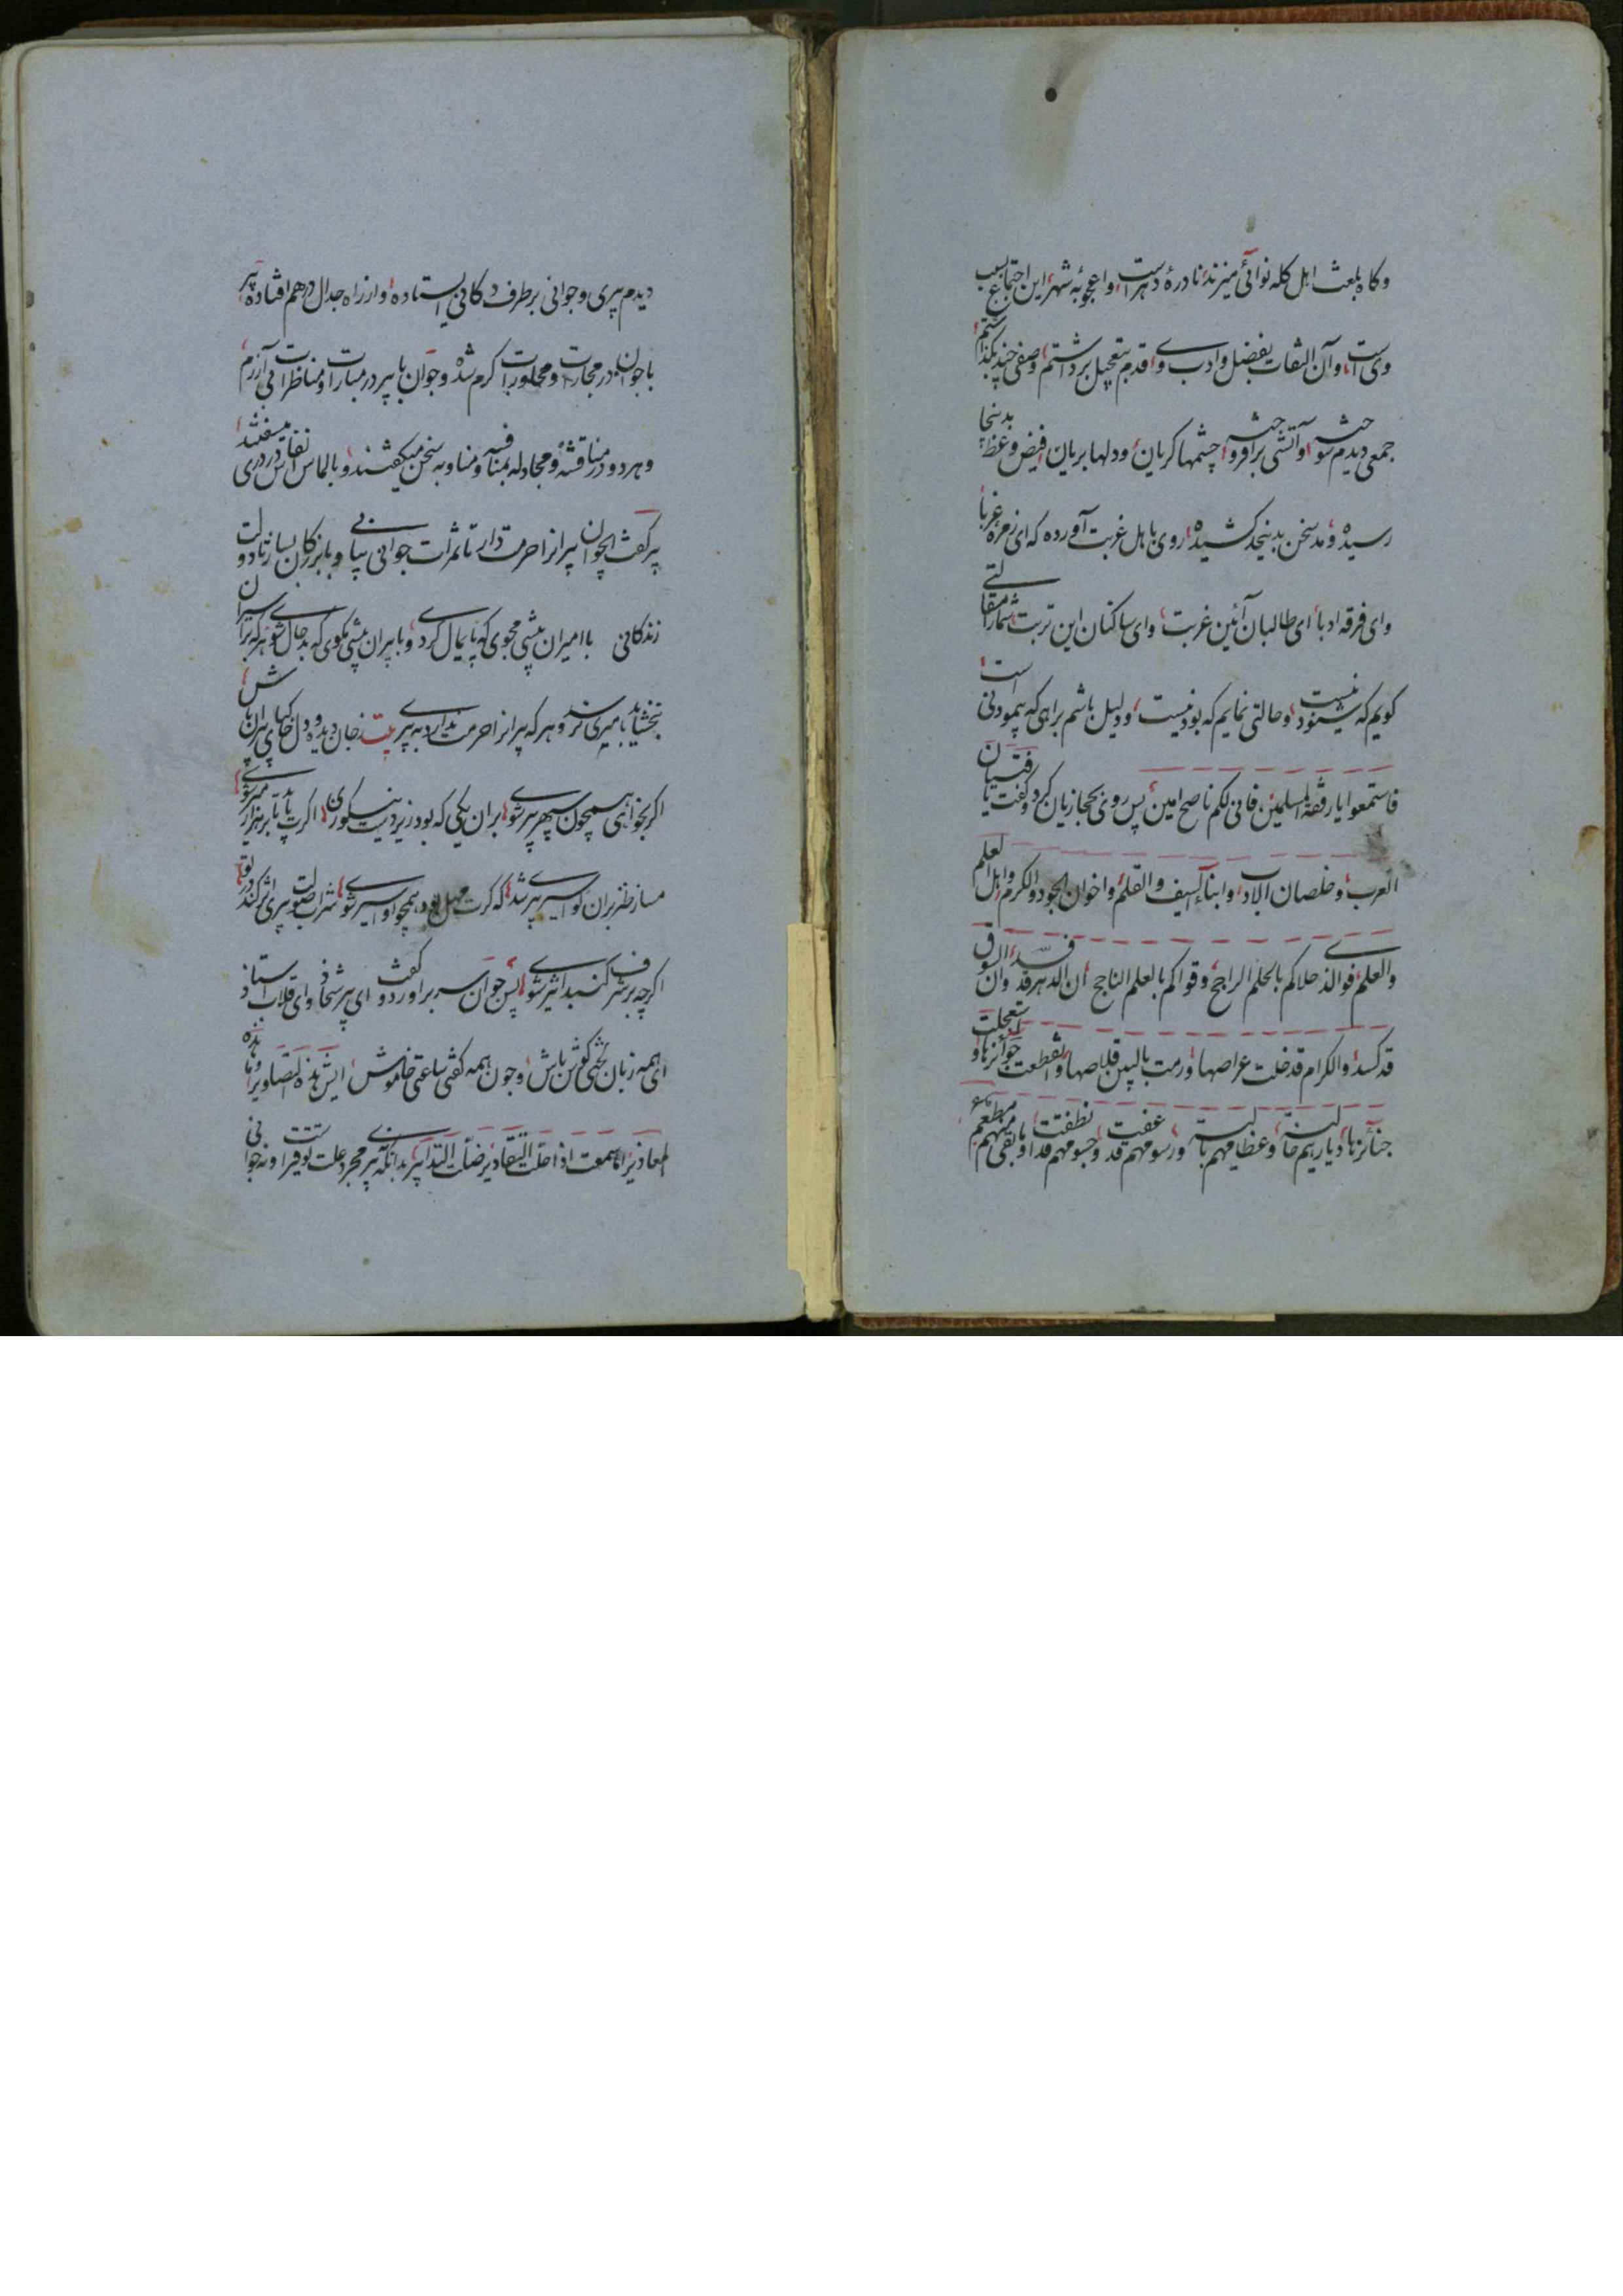 و گاه بلعث اهل کله نوائی میزند نادرهٔ دهر است و اعجوبهٔ شهر این اجتماع بسبب
وی است و آن التفات بفضل و ادب وی قدم بتعجیل برداشتم و صفی چند بگذاشتم
جمعی دیدم و آتشی برافروخته چشمها گریان و دلها بریان فیض وعظ بدینجا
رسیده و مد سخن بدینجد کشیده روی باهل غربت آورده که ای زمرهٔ غربا
و ای فرقه ادبا ای طالبان آئین غربت و ای ساکنان این تربت شما را مقالتی
گویم که شنود نیست و حالتی نمایم که بود نیست و دلیل باشم براهی که پیمودنی است
فاستمعوا یا رفقة المسلمین فانی لکم ناصح امین پس روی بحجازیان کرد و گفت یا فتیان
العرب و خلصان الادب و ابناء السیف و القلم و اخوان الجود و الکرم و اهل العلم
والعلم فوالذی حلاکم بالحلم الراجح وقواکم بالعلم الناجح ان الدهر قد فسد وان السوق
قد کسد والکرام قد خلت عراصها ورمت بالبین قلاصها وانقطعت جوائزها و استعجلت
جنائزها دیارهم خالیة وعظامهم بالیة ورسومهم قد عفت وجسومهم قد نظفت وما بقی منهم مطعم
دیدم پیری و جوانی بر طرف دکانی ایستاده و از راه جدال در هم افتاده پیر
با جوان در مجارات و محاورات گرم شده و جوان با پیر در مبارات و مناظرات بی آزرم
و هر دو در مناقشه و مجادله بمنافسه و مناوبه سخن میگفتند و بالماس انفاس در دری میسفتند
پیر گفت ای جوان پیرانرا حرمت دار تا ثمرات جوانی بیابی و با بزرگان بساز تا دولت
زندگانی با امیران پیشی مجوی که پایمال گردی و با پیران بیشی مگوی که بدحال شوی هر که بر اسیران
نبخشاید بامیری نرسد و هر که پیرانرا حرمت ندارد به پیری بیت ز جان و دیده و دل خاکپای پیران باش
اگر بخواهی همچون سپهر پیر شوی بران یکی که بود زیر دست نیکو زی اگرت باید تا بر هزار میر شوی
مساز طنز بران کو اسیر پیری شد که گرت مهل بود همچو او اسیر شوی شراب صولت پیری اثر کند در تو
اگر چه بر شرف گنبد اثیر شوی پس جوان سر برآورد و گفت ای پیر شحاذ و ای قلاب استاذ
ای همه زبان لختی گوش باش و چون همه گفتی ساعتی خاموش ایش هذه التصاویر و ما هذه
المعاذیر اما سمعت اذا حلت التقادیر ضلت التدابیر بدانکه پیری مجرد علت توقیر او نه جوانی